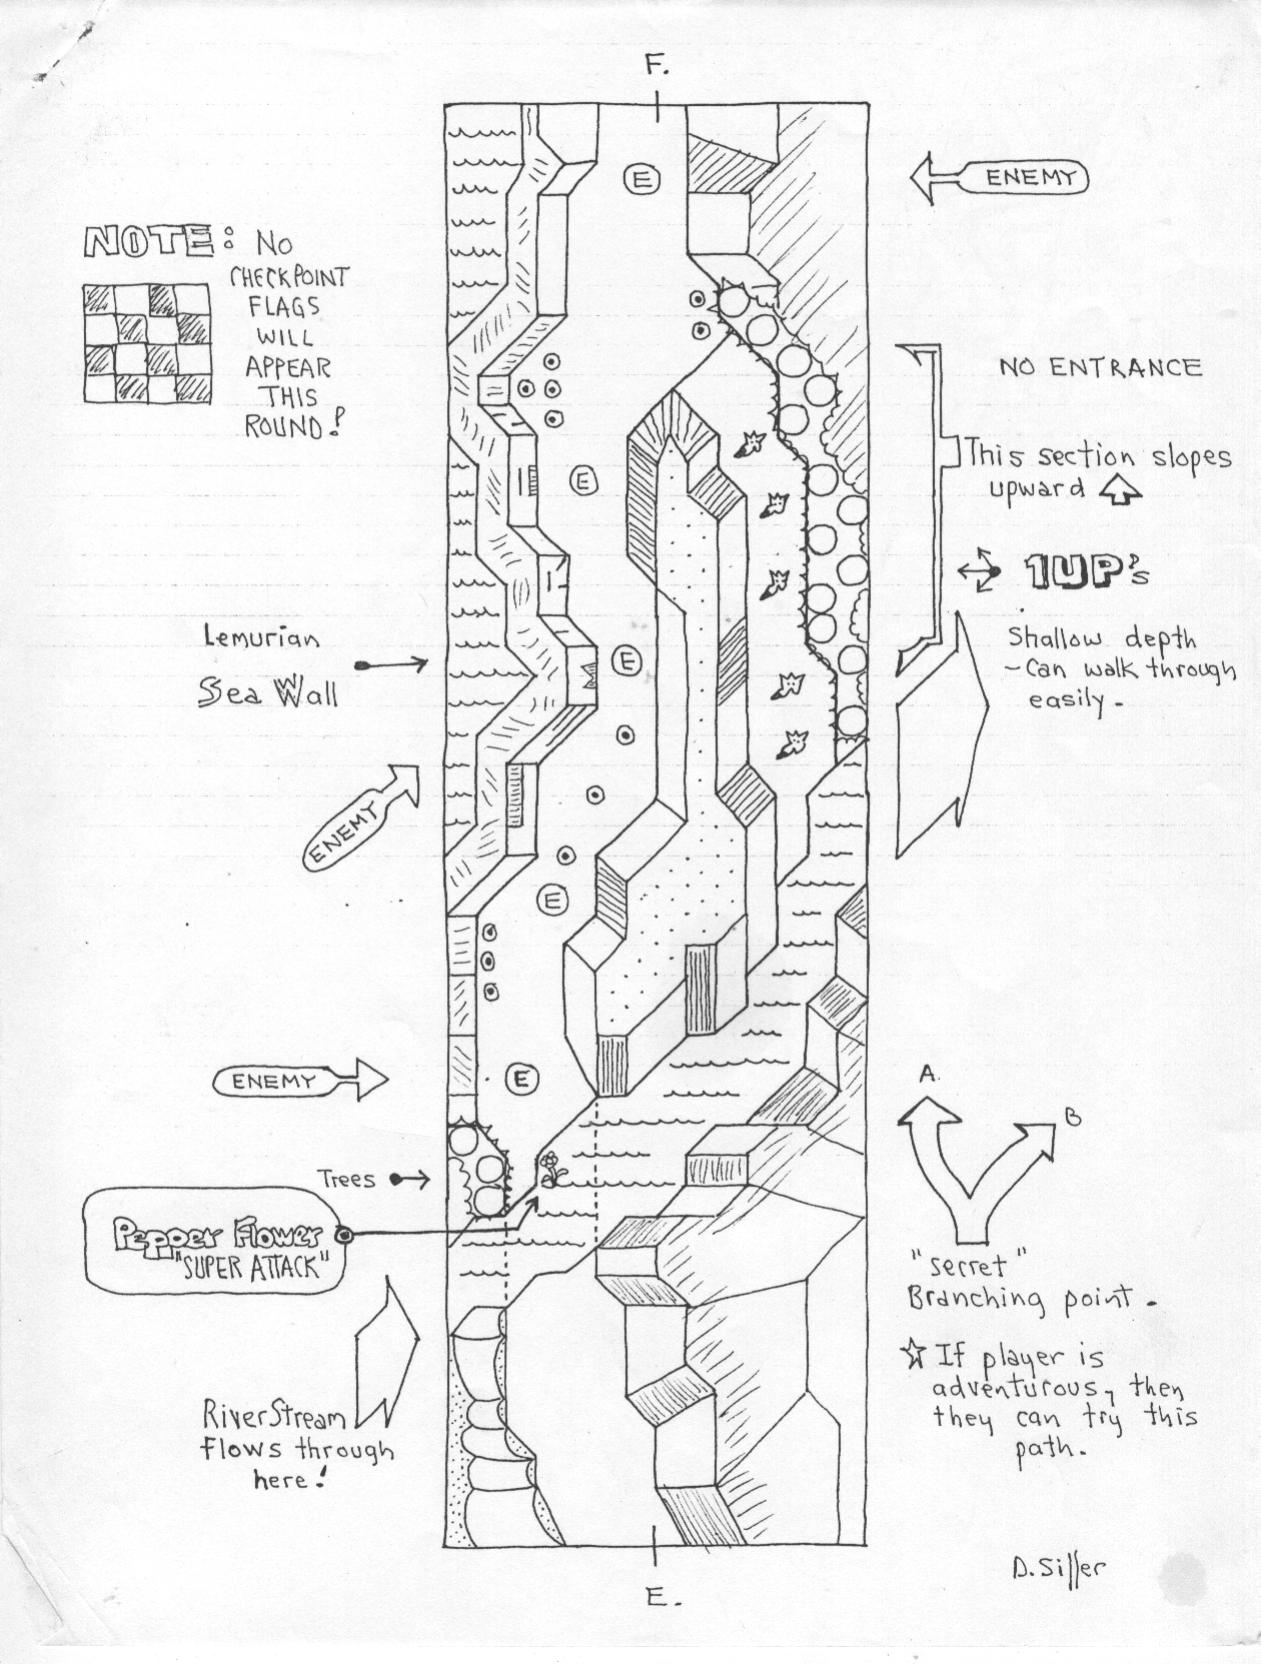 F.
E
ENEMY
NOTE: NO
CHECKPOINT
FLAGS
WILL
APPEAR
THIS
ROUND!
NO ENTRANCE
This section slopes
upward
E
1UP's
Lemurian
Sea Wall
E
Shallow depth
- Can walk through
easily.
ENEMY
E
ENEMY
E
A.
B
Trees
Pepper Flower
"SUPER ATTACK"
"secret"
Branching point.
☆ If player is
adventurous, then
they can try this
path.
River Stream
flows through
here!
E.
D. Siller